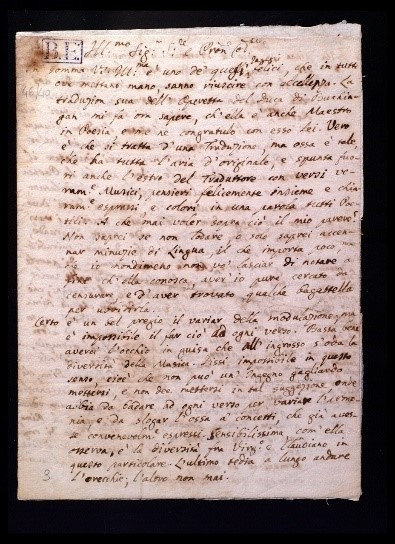 B.E.
Ill.mo Sig.r Sig.r e Pron. Col.mo
Ingegni
somma V.S. Ill.ma è uno de' quegli felici, che in tutto
ove mettano mano, sanno riuscire con eccellenza. La
traduzion sua dell' Operetta del Duca di Buchin-
gan mi fa ora sapere, ch'ella è anche Maestro
in Poesia, e me ne congratulo con esso lei. Vero
è che si tratta d'una Traduzione, ma essa è tale
che ha tutta l'aria d'originale, e spunta fuo-
ri anche l'estro del Traduttore con versi ve-
ram.e Musici, pensieri felicemente insieme e chia-
ram.e espressi, e colori in una parola tutti Poe-
tici. A che mai voler sopra ciò il mio parere?
Non saprei se non lodare, e solo saprei accen-
nar minuzie di Lingua, il che importa poco, ma
che io nondimeno non vo' lasciar di notare a
fine ch'ella conosca, aver io pure cercato
censurare, e d'aver trovato qualche bagattella
per
Certo è un bel pregio il variar della modulazione, ma
è impossibile il far ciò ad ogni verso. Basta bene
avervi l'occhio in guisa che all' ingrosso s'oda la
diversità della Musica. Dissi impossibile in questo
senso, cioè che non può un' Ingegno gagliardo
mettersi, e non dee mettersi in tal suggezione, onde
abbia da badare ad ogni verso per variar l'armo-
nia, e da slogar l'ossa a' concetti, che già aves-
se convenevolm.e espressi. Sensibilissima, com' ella
osserva, è la diversità fra Virg.o e Claudiano in
questo particolare. L'ultimo tedia a lungo andare
l'orecchio; l'altro non mai.
3.